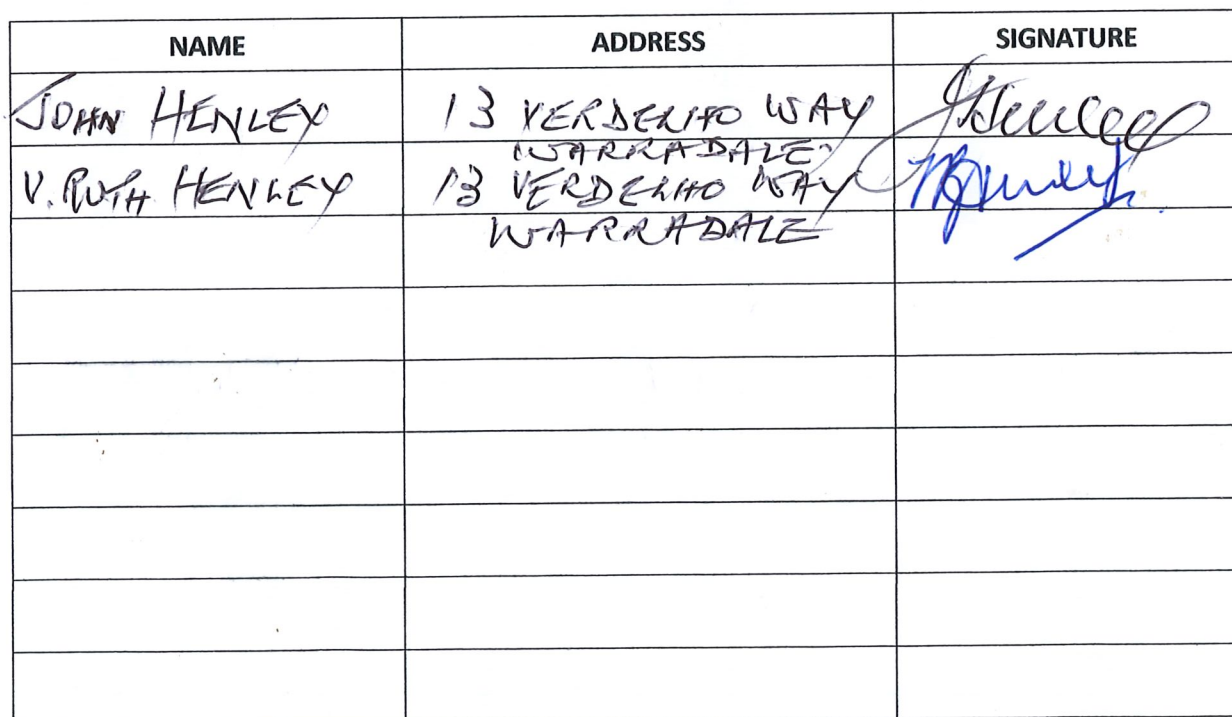 NAME ADDRESS SIGNATURE
JOHN HENLEY 13 VERDELHO WAY
WARRADALE
V. RUTH HENLEY 13 VERDELHO WAY
WARRADALE